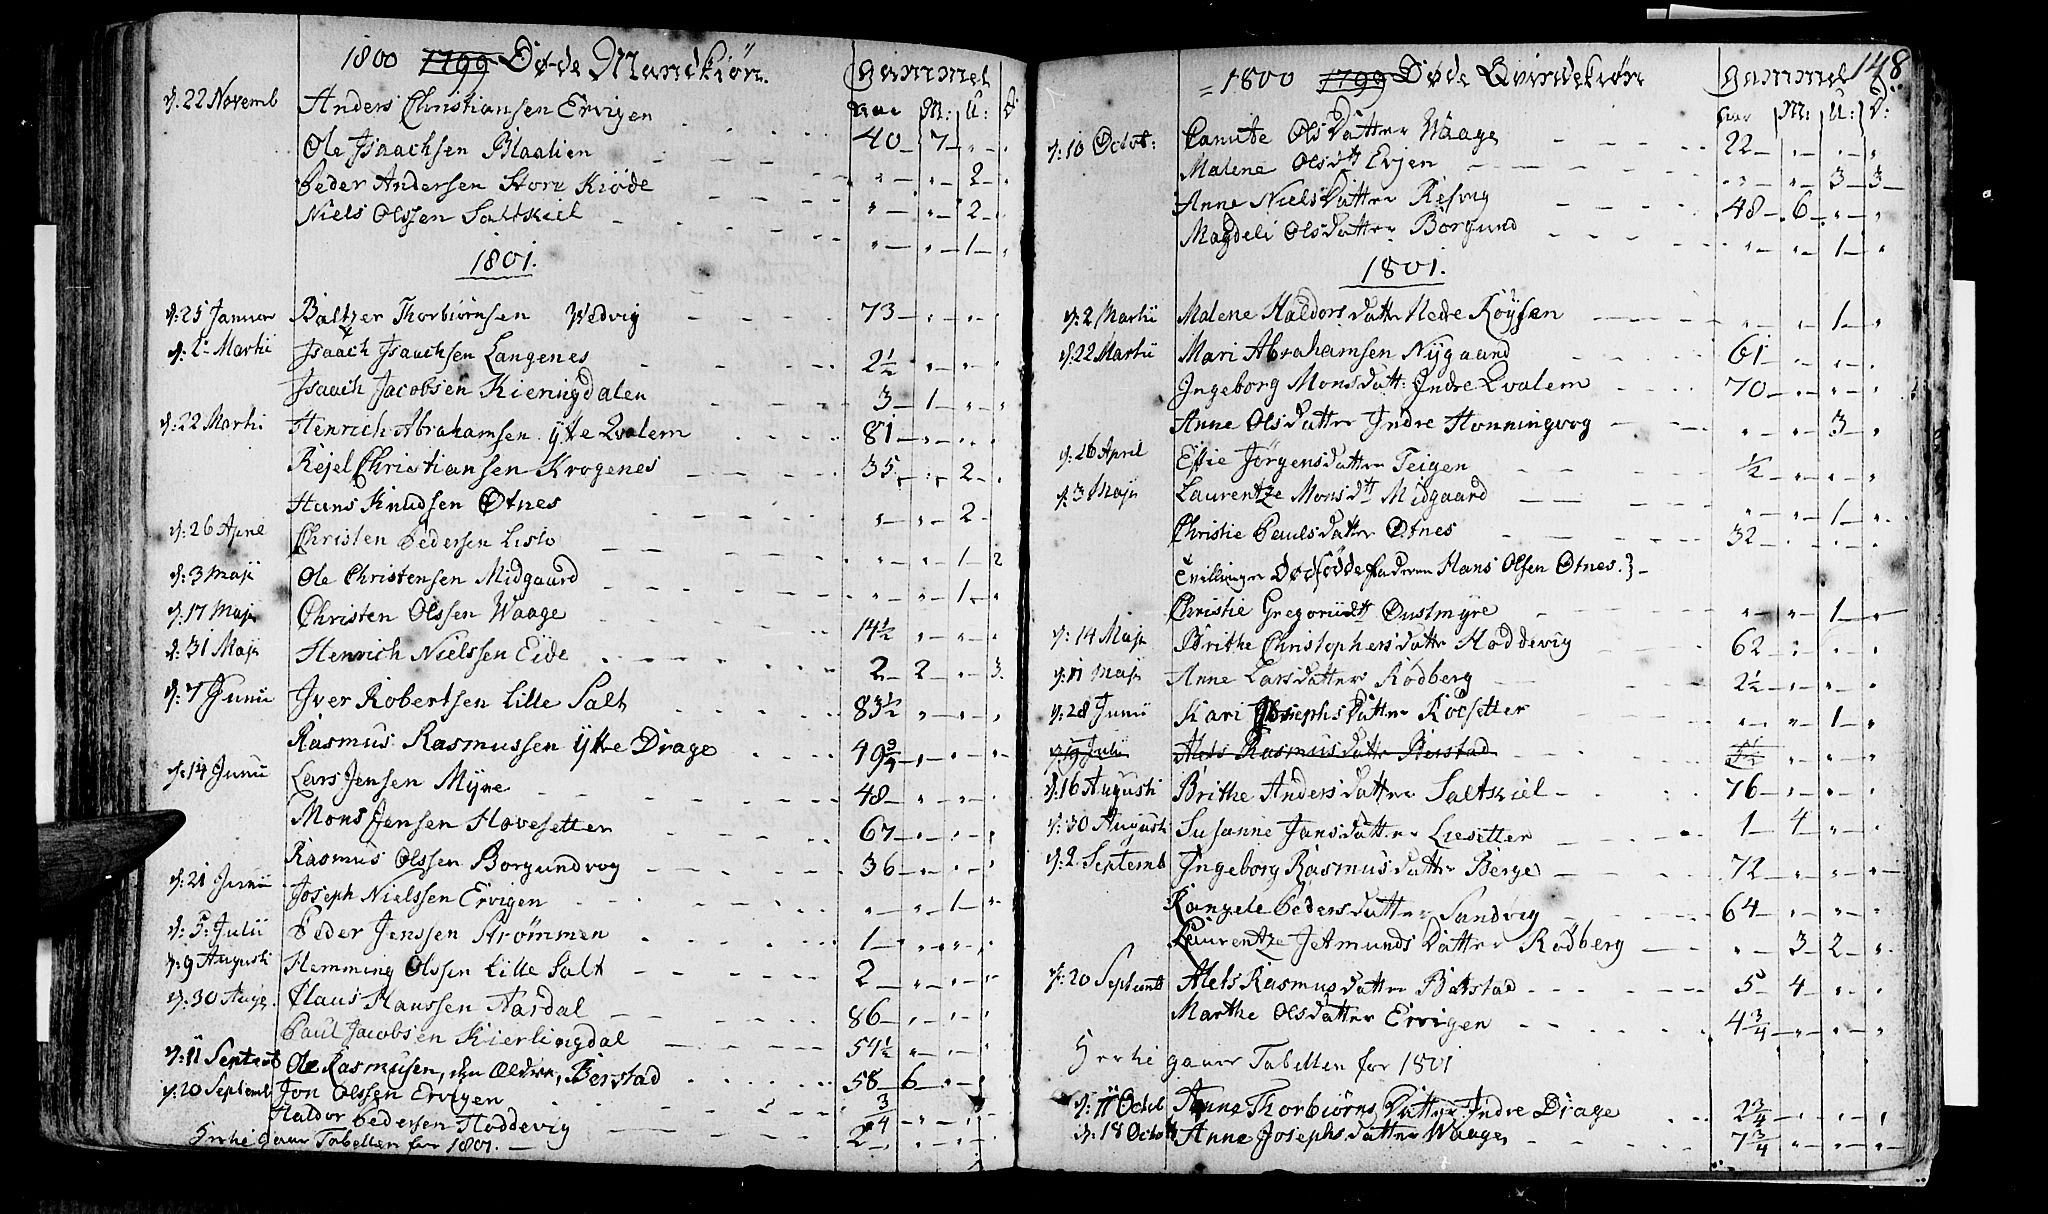 1800 1799 Døde Mandkiön. Gammel
Aar M: U: D
d: 22 Novemb Anders Christiansen Ervigen 40 - 7 - " - "
Ole Isaachsen Blaalien " - " - 2 - "
Peder Andersen Store Kiøde " - " - 2 - "
Niels Olssen Saltskiel " - " - 1 - "
1801.
d: 25 Januar Baltzer Thorbiørnsen Wedvig 73 - " - " - "
d: 2 Martii Isaach Isaachsen Langenes 2½ " - " - "
Isaach Jacobsen Kieringdalen 3 - 1 - " - "
d: 22 Martii Henrich Abrahamsen Ytre Qvalem 81 - " - " - "
Rejel Christiansen Krogenes 35 - " - 2 - "
Hans Knudsen Otnes " - " - 2 -
d: 26 April Christen Pedersen Lislo " - " - 1 - 2
d: 3 Maji Ole Christensen Midgaard " - " - 1 - "
d: 17 Maji Christen Olssen Waage 14½ " - " - "
d: 31 Maji Henrich Nielssen Eide 2 - 2 - " - 3
d: 7 Junii Iver Robertsen Lille Salt 83½ " - " - "
Rasmus Rasmussen Ytre Drage 49¾ " - " - "
d: 14 Junii Lars Jensen Myre 48 - " - " - "
Mons Jensen Hovesetter 67 - " - " - "
Rasmus Olssen Borgundvog 36 - " - " - "
d: 21 Junii Joseph Nielssen Ervigen " - " - 1 - "
d: 5: Julii Peder Jenssen Strømmen 1 - " - " - "
d: 9 Augusti Hemming Olssen Lille Salt 2 - " - " - "
d: 30 Aug. Claus Hanssen Aardal 86 - " - " - "
Paul Jacobsen Kierlingdal 54½ " - " - "
d: 11 Septemb Ole Rasmusen, den Ældre, Berstad 58 - 6 - " - "
d: 20 Septemb Jon Olssen Ervigen ¾ - " - " - "
Haldor Pedersen Hoddevig 2 - " - " - "
Herhi gaaer Tabellen for 1801. -
148
= 1800 1799 Døde Qvindekiön Gammel
Aar M: U: D:
d: 10 Octob: Panute Olsdatter Waage 22 - " - " - "
Malene Olsdtt Evjen " - " - 3 - 3 -
Anne Nielsdatter Refvig 48 - 6 - " - "
Magdeli Olsdatter Borgund " - " - 1 - "
1801.
d: 2 Martii Malene Haldorsdatter Nedre Röysen " - " - 1 - "
d: 22 Martii Mari Abrahamsen Nygaard 61 - " - " - "
Ingeborg Monsdatt: Indre Qvalem 70 - " - " - "
Anne Olsdatter Indre Honningvog " - " - 3 - "
d: 26 April Essie Jörgensdatter Teigen ½ " - " - "
d: 3 Maji Laurentze Monsdtt Midgaard " - " - 1 - "
Christie Paulsdatter Otnes 32 - " - " - "
Tvillinger Dødfödde faderen Hans Olsen Otnes. } -
Christie Gregoriidtt Dustmyre " - " - 1 - "
d: 14 Maji Brithe Christophersdatter Hoddevig 62 - " - " - "
d: 11 Maji Anne Larsdatter Rödberg 2½ - " - " - "
d: 28 Junii Kari Josephsdatter Rocsetter " - " - 1 - "
d: 19 Julii Alets Rasmusdatter Berstad 5½ " - " - "
d: 16 Augusti Brithe Andersdatter Saltskiel 76 - " - " - "
d: 30 Augusti Susanne Jansdatter Liesetter 1 - 4 - " - "
d: 2 Septemb Ingeborg Rasmusdatter Berge 72 - " - " - "
Rangele Pedersdatter Sandvig 64 - " - " - "
Laurentze Jetmundsdatter Rödberg " - 3 - 2 - "
d: 20 Septemb Alets Rasmusdatter Batstad 5 - 4 - " - "
Marthe Olsdatter Ervigen 4¾ - " - " - "
Herhi gaaer Tabellen for 1801
d: 11 Octob Anne Thorbiörnsdatter Indre Drage 2¾ " - " - "
d: 18 Octob Anne Josephsdatter Waage 7¾ " - " - "